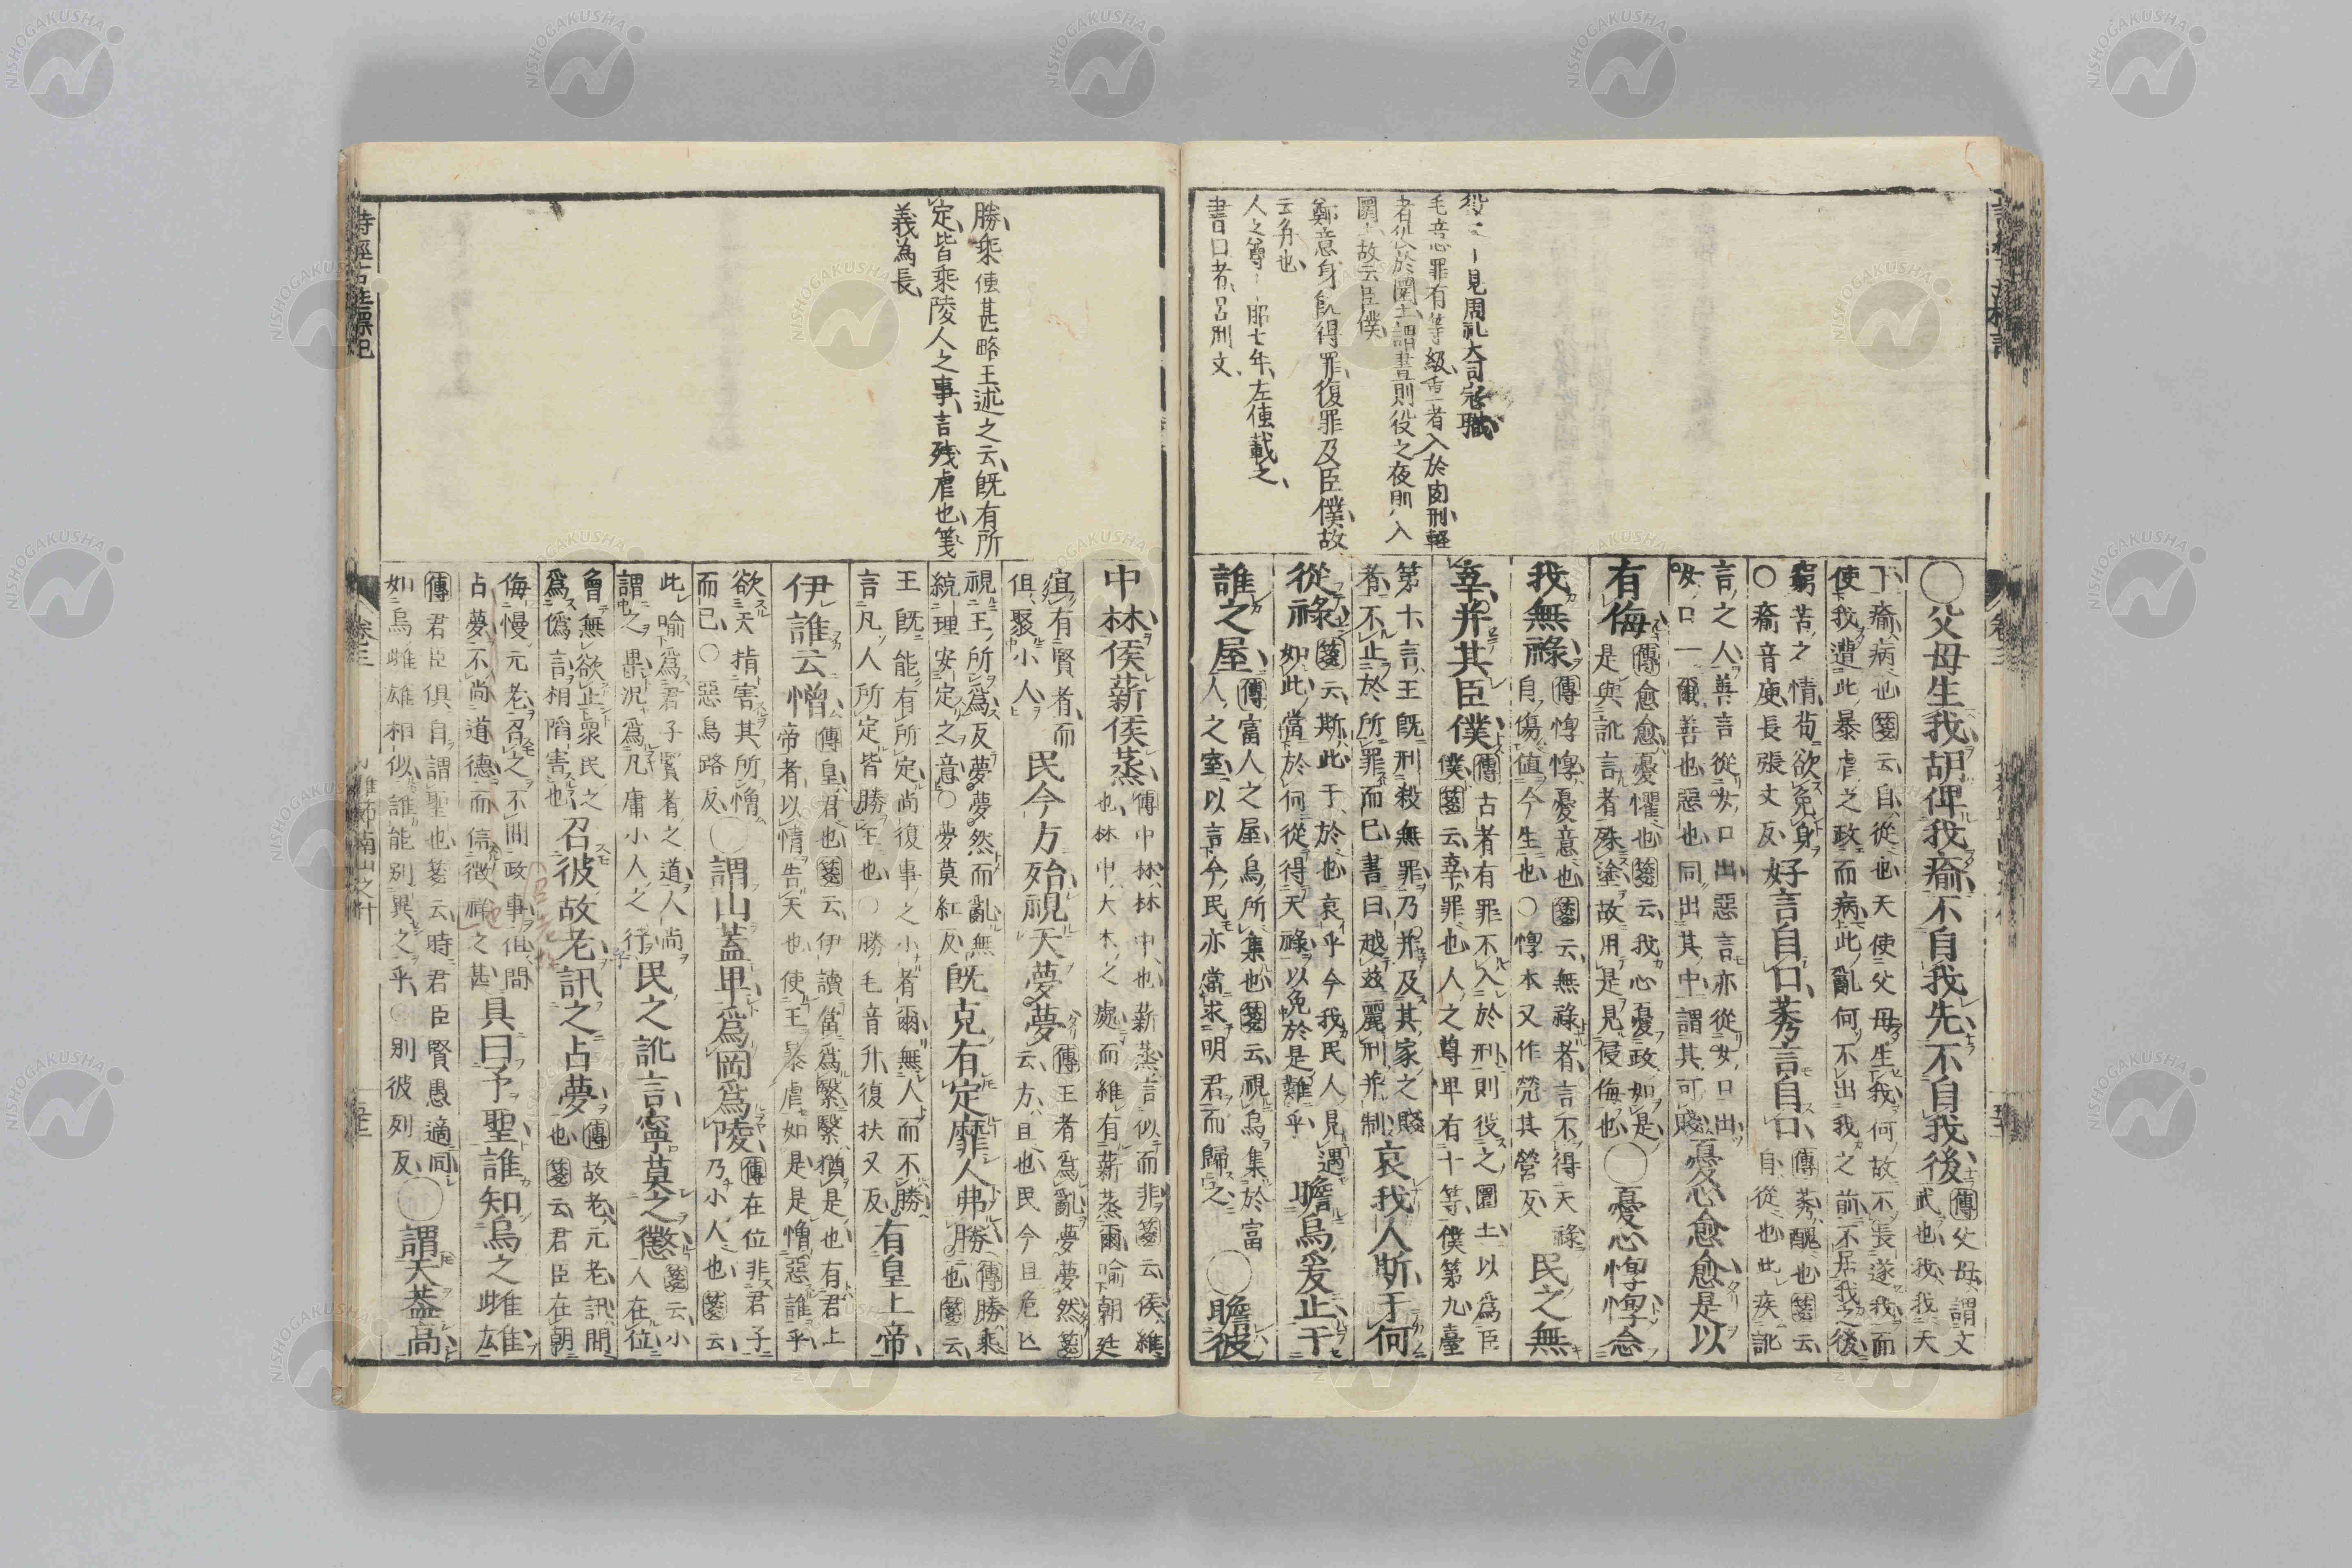 毛意罪有等級重者入於圜刑輕
者役於圜土謂晝則役之夜則入
圜土故云臣僕
鄭意身既得罪復罪及臣僕故
云并也
人之尊 昭七年左傳載之
書曰者呂刑文
○父母生我胡俾我瘉不自我先不自我後
傳父母謂文
武也我我天
下瘉病也箋云自從也天使父母生我何故不長遂我而
使我遭此暴虐之政而病此亂何不出我之前不居我之後
窮苦之情苟欲免身
○瘉音庾長張丈反
好言自口莠言自口
傳莠醜也箋云
自從也此疾訛
言之人善言從女口出惡言亦從女口出
女口一爾善也惡也同出其中謂其可賤
憂心愈愈是以
有侮
傳愈愈憂懼也箋云我心憂政如是
是與訛言者殊塗故用是見侵侮也
○憂心惸惸念
我無祿
傳惸惸憂意也箋云無祿者言不得天祿
自傷値今生也○惸本又作煢其營反
民之無
辜并其臣僕
傳古者有罪不入於刑則役之圜土以爲臣
僕箋云辜罪也人之尊卑有十等僕第九臺
第十言王既刑殺無罪乃并及其家之賤
者不止於所罪而已書曰越茲麗刑并制
哀我人斯于何
從祿
箋云斯此于於也哀乎今我民人見遇
如此當於何從得天祿以免於是難乎
瞻烏爰止于
誰之屋
傳富人之屋烏所集也箋云視烏集於富
人之室以言今民亦當求明君而歸之
○瞻彼
勝乘傳甚略王述之云既有所
定皆乘陵人之事言殘虐也箋
義為長
中林侯薪侯蒸
傳中林林中也薪蒸言似而非箋云侯維
也林中大木之處而維有薪蒸爾喻朝廷
宜有賢者而
但聚小人
民今方殆視天夢夢
傳王者爲亂夢夢然箋
云方且也民今且危亡
視王所爲反夢夢然而亂無
統理安定之意○夢莫紅反
既克有定靡人弗勝
傳勝乘
也箋云
王既能有所定尚復事之小者爾無人而不勝
言凡人所定皆勝王也○勝毛音升復扶又反
有皇上帝
伊誰云憎
傳皇君也箋云伊讀當爲繄繄猶是也有君上
帝者以情告天也使王暴虐如是是憎惡誰乎
欲天指害其所憎
而已○惡烏路反
○謂山蓋卑爲岡爲陵
傳在位非君子
乃小人也箋云
此喻爲君子賢者之道人尚
謂之卑況爲凡庸小人之行
民之訛言寧莫之懲
箋云小
人在位
曾無欲止衆民之
爲僞言相陷害也
召彼故老訊之占夢
傳故老元老訊問
也箋云君臣在朝
侮慢元老召之不問政事但問
占夢不尚道德而信徵祥之甚
具曰予聖誰知烏之雌雄
傳君臣俱自謂聖也箋云時君臣賢愚適同
如烏雌雄相似誰能別異之乎○別彼列反
○謂天蓋高